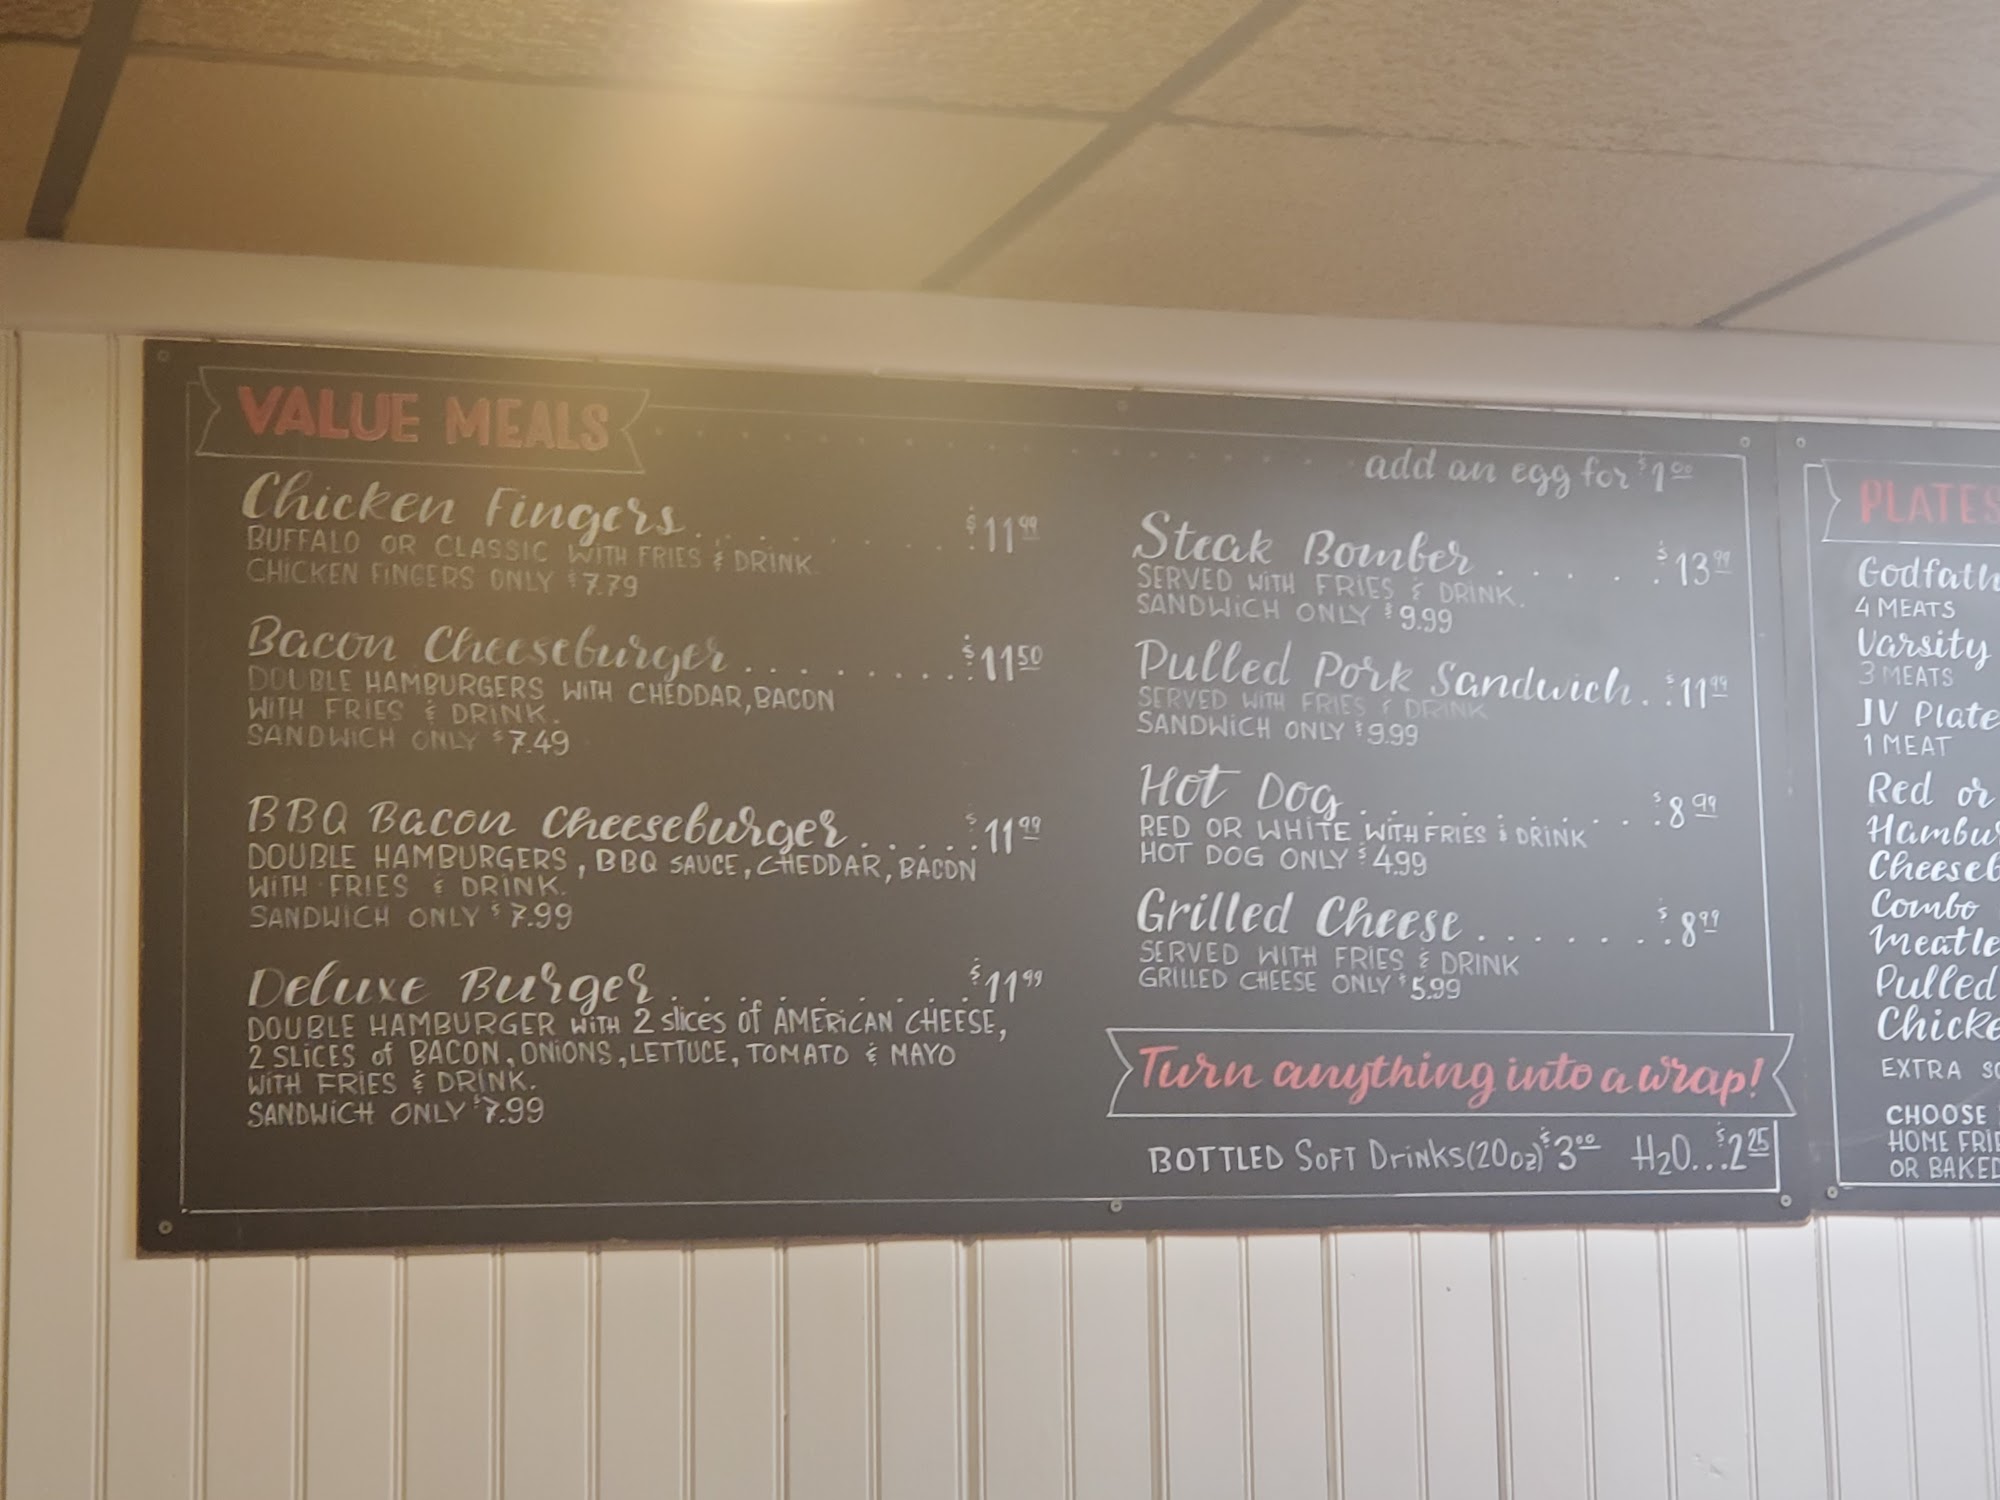 VALUE MEALS
Chicken Fingers . . . . . . . . . $11.99
BUFFALO OR CLASSIC WITH FRIES & DRINK.
CHICKEN FINGERS ONLY $7.79
Bacon Cheeseburger . . . . . . . . $11.50
DOUBLE HAMBURGERS WITH CHEDDAR, BACON
WITH FRIES & DRINK.
SANDWICH ONLY $7.49
BBQ Bacon Cheeseburger . . . . . $11.99
DOUBLE HAMBURGERS, BBQ SAUCE, CHEDDAR, BACON
WITH FRIES & DRINK.
SANDWICH ONLY $7.99
Deluxe Burger . . . . . . . . . $11.99
DOUBLE HAMBURGER WITH 2 slices of AMERICAN CHEESE,
2 SLICES of BACON, ONIONS, LETTUCE, TOMATO & MAYO
WITH FRIES & DRINK.
SANDWICH ONLY $7.99
add an egg for $1.00
Steak Bomber . . . . . $13.99
SERVED WITH FRIES & DRINK.
SANDWICH ONLY $9.99
Pulled Pork Sandwich . . $11.99
SERVED WITH FRIES & DRINK
SANDWICH ONLY $9.99
Hot Dog . . . . . . . . $8.99
RED OR WHITE WITH FRIES & DRINK
HOT DOG ONLY $4.99
Grilled Cheese . . . . . . . $8.99
SERVED WITH FRIES & DRINK
GRILLED CHEESE ONLY $5.99
Turn anything into a wrap!
BOTTLED SOFT DRINKS (20oz) $3.00 H2O...$2.25
PLATES
Godfath
4 MEATS
Varsity
3 MEATS
JV Plate
1 MEAT
Red or
Hambu
Cheeseb
Combo
Meatle
Pulled
Chicke
EXTRA
CHOOSE
HOME FRI
OR BAKED